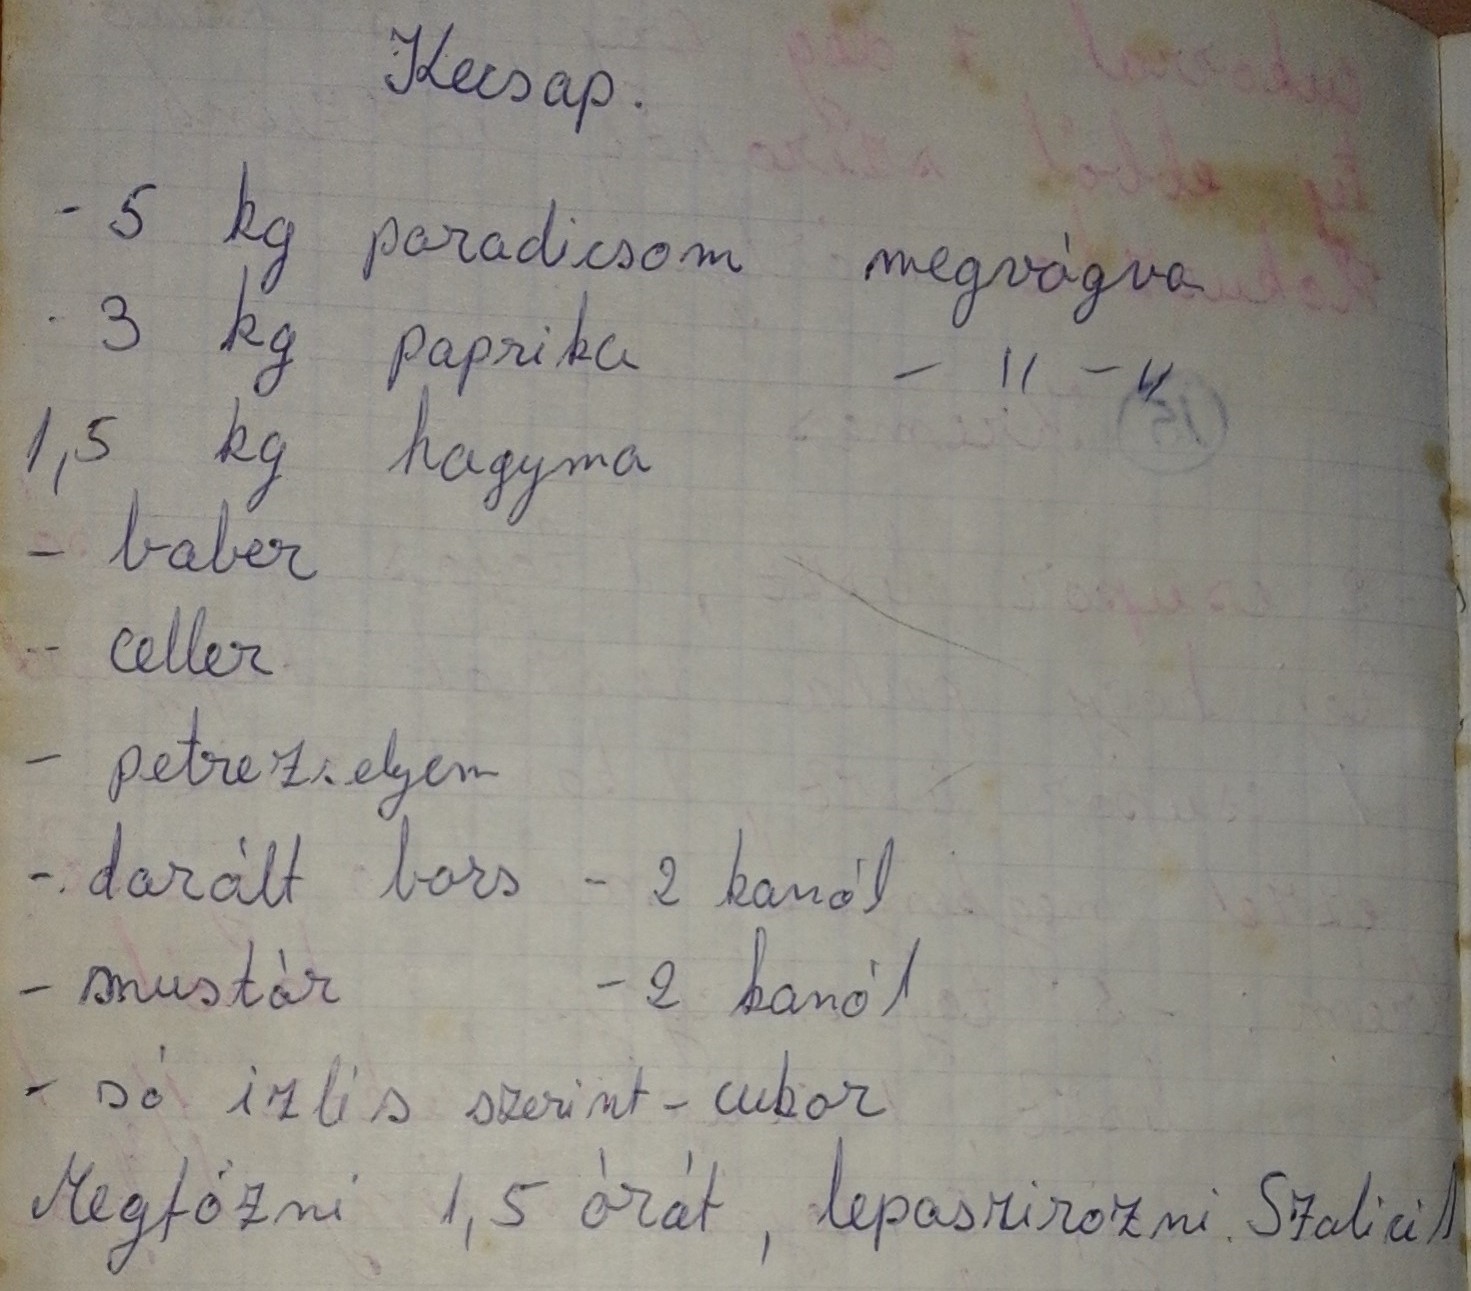 Kecsap.
- 5 kg paradicsom megvágva
- 3 kg paprika - " - "
1,5 kg hagyma
- baber
- celler
- petrezselyem
- darált bors - 2 kanál
- mustár - 2 kanál
- só izlés szerint - cukor
Megfőzni 1,5 órát, lepaszirozni. Szalicil